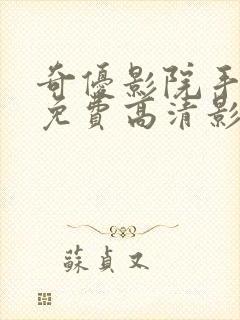 奇優影院手
免費高清影
蘇貞又